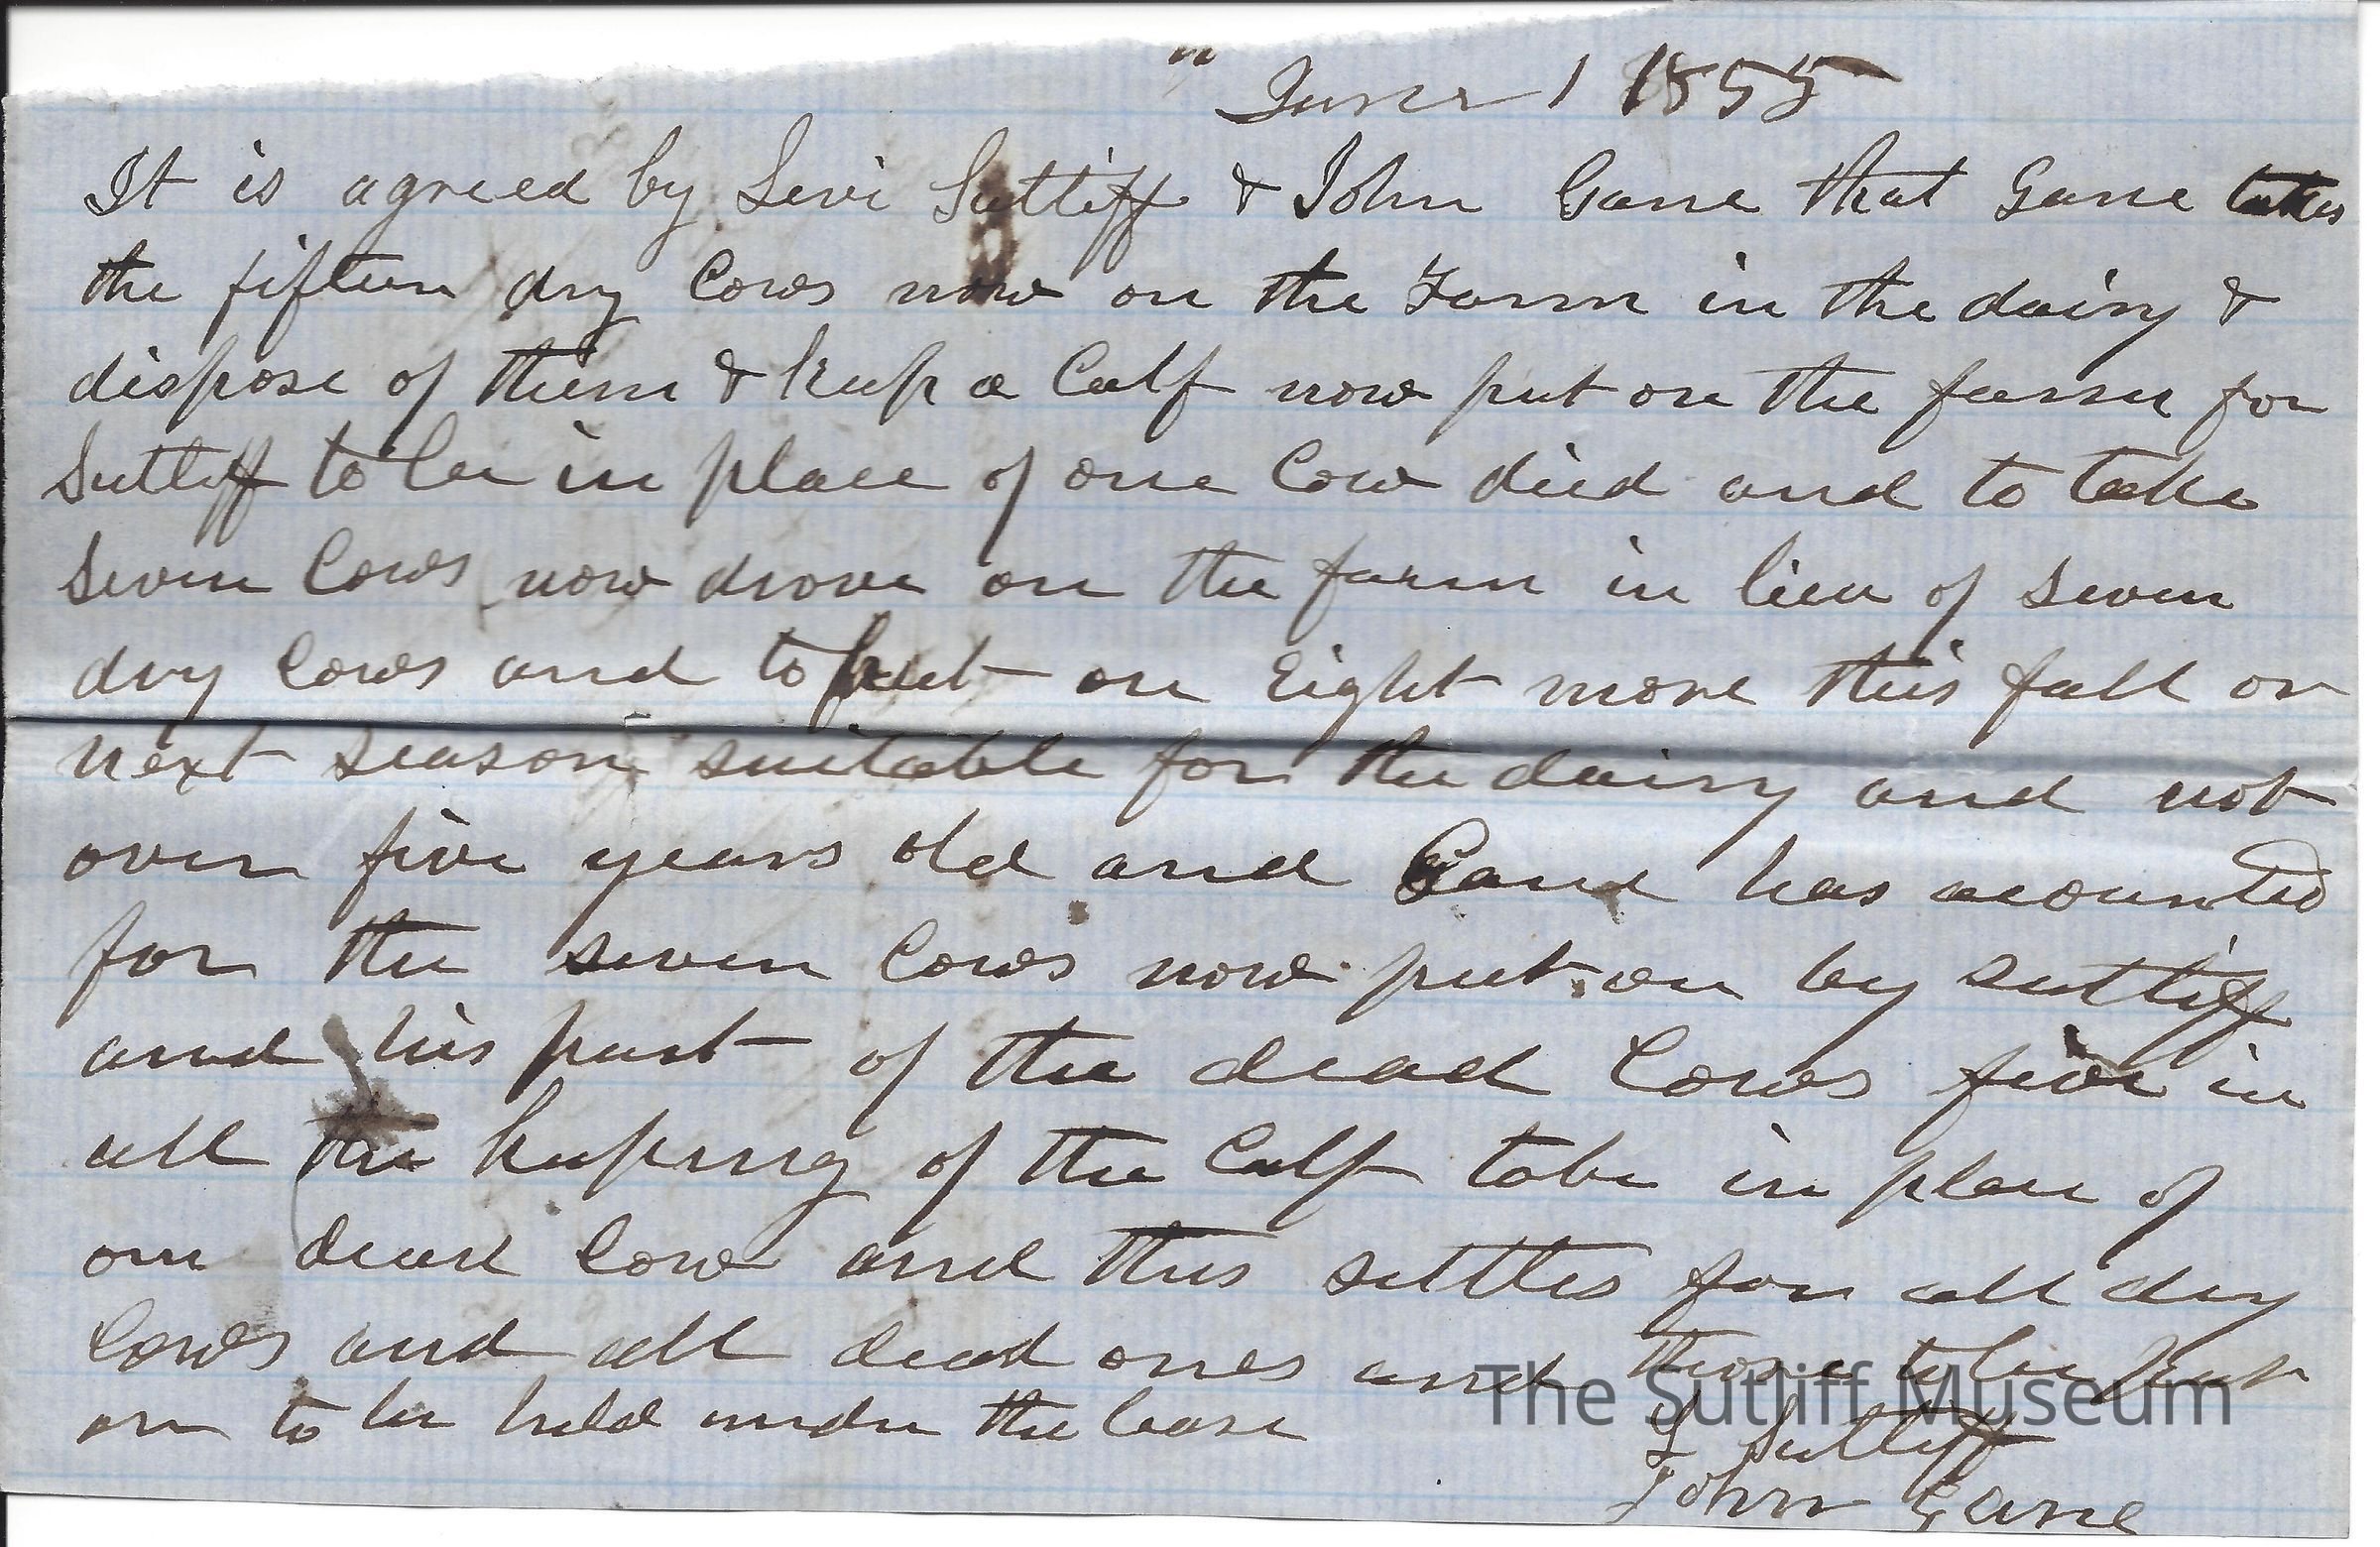 " June 1 1855
It is agreed by Levi Sutliff & John Gane that Gane takes
the fifteen dry Cows now on the Farm in the dairy &
dispose of them & keep a Calf now put on the farm for
Sutliff to be in place of one Cow died and to take
Seven Cows now drove on the farm in lieu of seven
dry Cows and to put on Eight more this fall or
next season suitable for the dairy and not
over five years old and Gane has acounted
for the seven Cows now put on by Sutliff
and his part of the dead Cows five in
all the keeping of the Calf tobe in place of
one dead Cow and this settles for all dry
Cows and all dead ones and those tobe put
on to be held under the lease
L Sutliff
John Gane
The Sutliff Museum